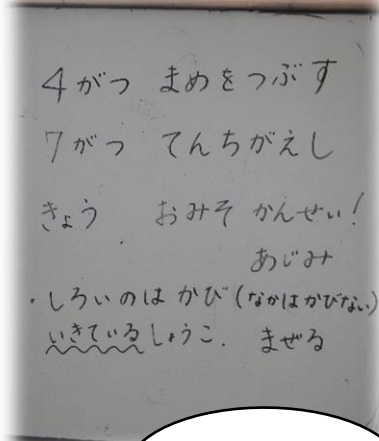 4がつ まめをつぶす
7がつ てんちがえし
きょう おみそ かんせい!
あじみ
・しろいのは かび(なかはかびない)
いきているしょうこ. まぜる